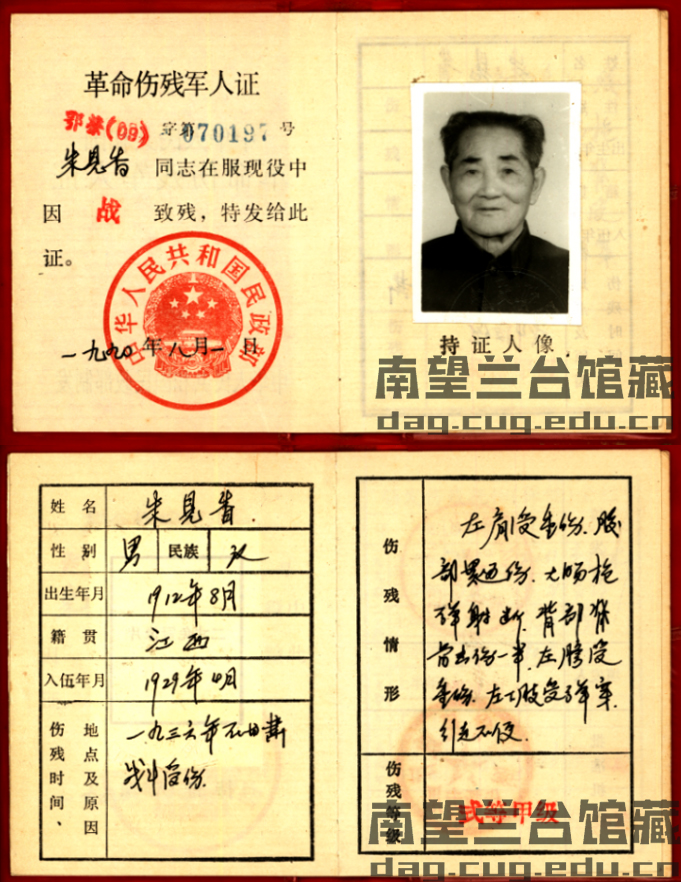 革命伤残军人证
鄂禁(09)字第070197号
朱见省 同志在服现役中
因 战 致残，特发给此
证。
中华人民共和国民政部
一九九〇年八月一日
持证人像
南望兰台馆藏
dag.cug.edu.cn
姓名 朱见省
性别 男 民族 汉
出生年月 1912年8月
籍贯 江西
入伍年月 1929年4月
伤残时间、地点及原因
一九三六年在甘肃
战斗负伤
伤残情形
左肩受重伤.腹
部贯通伤.大肠枪
弹射断.背部脊
骨击伤一半.左膀受
重伤.左下肢受弹穿
引走不便
伤残等级 贰等甲级
南望兰台馆藏
dag.cug.edu.cn